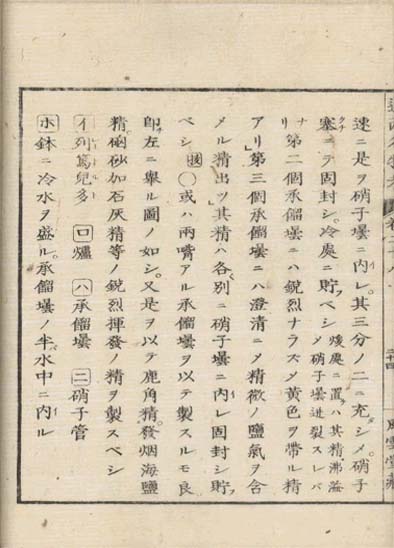 速ニ是ヲ硝子壜ニ内レ。其三分ノ二ニ充シメ。硝子
塞ニテ固封シ。冷處ニ貯ベシ 煖處ニ置ハ其精沸溢
メ硝子壜迸裂スレバ
ナリ 第二個承餾壜ニハ鋭烈ナラズメ黄色ヲ帶ル精
アリ 第三個承餾壜ニハ澄清ニメ精微ノ鹽氣ヲ含
メル精出ツ其精ハ各別ニ硝子壜ニ内レ固封シ貯
ベシ 〇或ハ兩嘴アル承餾壜ヲ以テ製スルモ良
即左ニ擧ル圖ノ如シ。又是ヲ以テ鹿角精。發烟海鹽
精。硇砂加石灰精等ノ鋭烈揮發ノ精ヲ製スベシ
イ列篤兒多 ロ爐 ハ承餾壜 ニ硝子管
ホ鉢ニ冷水ヲ盛ル。承餾壜ノ半水中ニ内ル